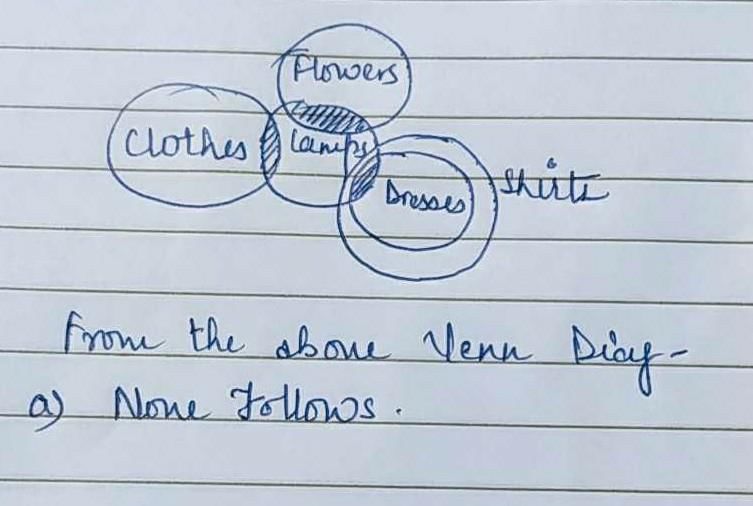 Flowers
Clothes
Lamps
Dresses
Shirts
From the above Venn Diag-
a) None Follows.